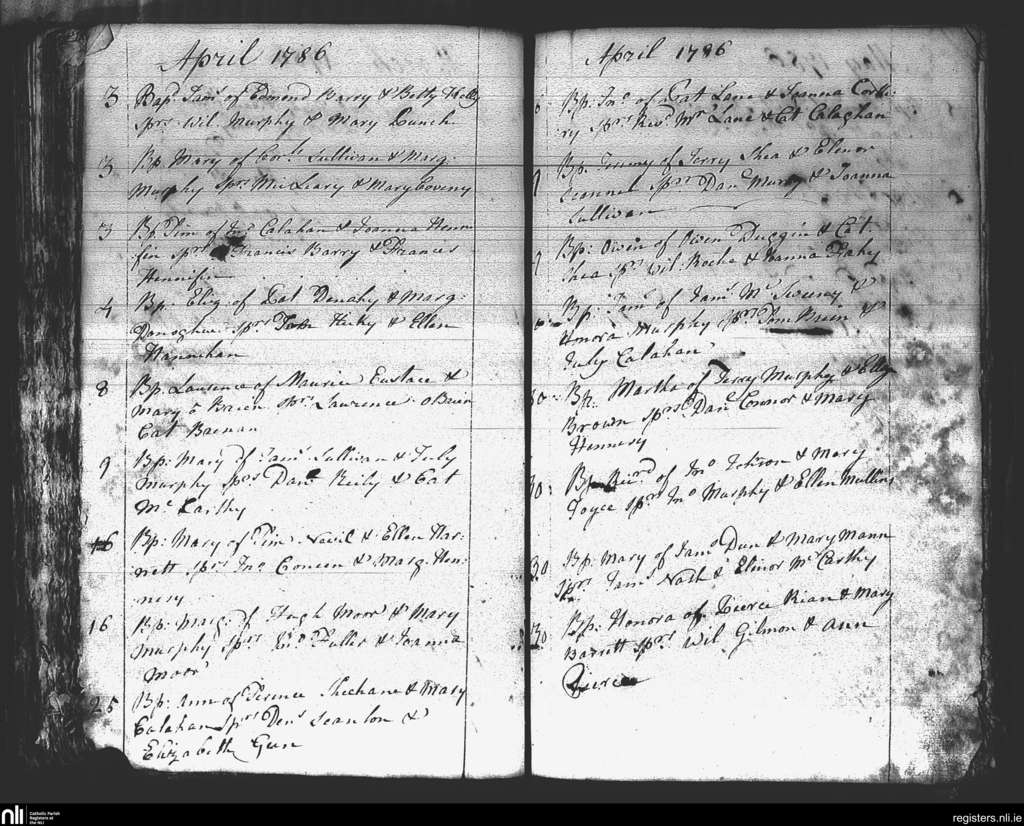 April 1786
3 Bap: Jams of Edmond Barry & Betty
Sprs. Wil. Murphy & Mary Lunch
3 Bp. Mary of Cors. Sullivan & Marg.
Murphy Sprs. Mic Leary & Mary Coveny
3 Bp Tim of Jno Calahan & Joanna Henni
fin sprs Francis Barry & Frances
Hennifin
4 Bp. Eliz: of Pat Donahy & Marg:
Donoghue sprs & Ellen
Hannihan
8 Bp. Laurence of Maurice Eustace &
Mary o Brien. Sprs. Lawrence oBrien
Cat
9 Bp: Mary of Jams Sullivan & July
Murphy Sprs Danl Reily & Cat
Mc Carthy
16 Bp: Mary of Tim Nevil & Ellen Har-
nett Sprs Jno & Marg. Hen:
nesy
16 Bp: Marg: of Hugh Morr & Mary
Murphy Sprs. Jno. Fuller & Joanna
Morr
25 Bp: Ann of Terence Sheehane & Mary
Calahan Sprs Dens Scanlon &
Elizabeth Gun
April 1786
Bp. Jno. of Pat Lane & Joanna Corbe:
ry Sprs Revd. Mr Lane & Cat Calaghan
Bp. of Jerry Shea & Elenor
Sprs Danl & Joanna
Sullivan
Bp: Owen of Owen Duggin & Cat
Shea Sprs. Wil: Roche & Joanna
Bp: Jams of Jams. Mc Sweeny &
Honora Murphy Sprs Tom &
July Calahan
30: Bp: Martha of Jerry Murphy & Elly
Brown Sprs. Danl Connor & Mary
Hennesy
30: Bp of Jno & Mary
Joyce Sprs Jno Murphy & Ellen Mullins
30 Bp: Mary of Jams Dun & Mary Mann
Sprs. Jams Nash & Elinor Mc Carthy
30 Bp: Honora of Pierce Rian & Mary
Barrett Sprs Wil Gilmon & Ann
Pierce
nli
Catholic Parish
Registers at
the NLI
registers.nli.ie